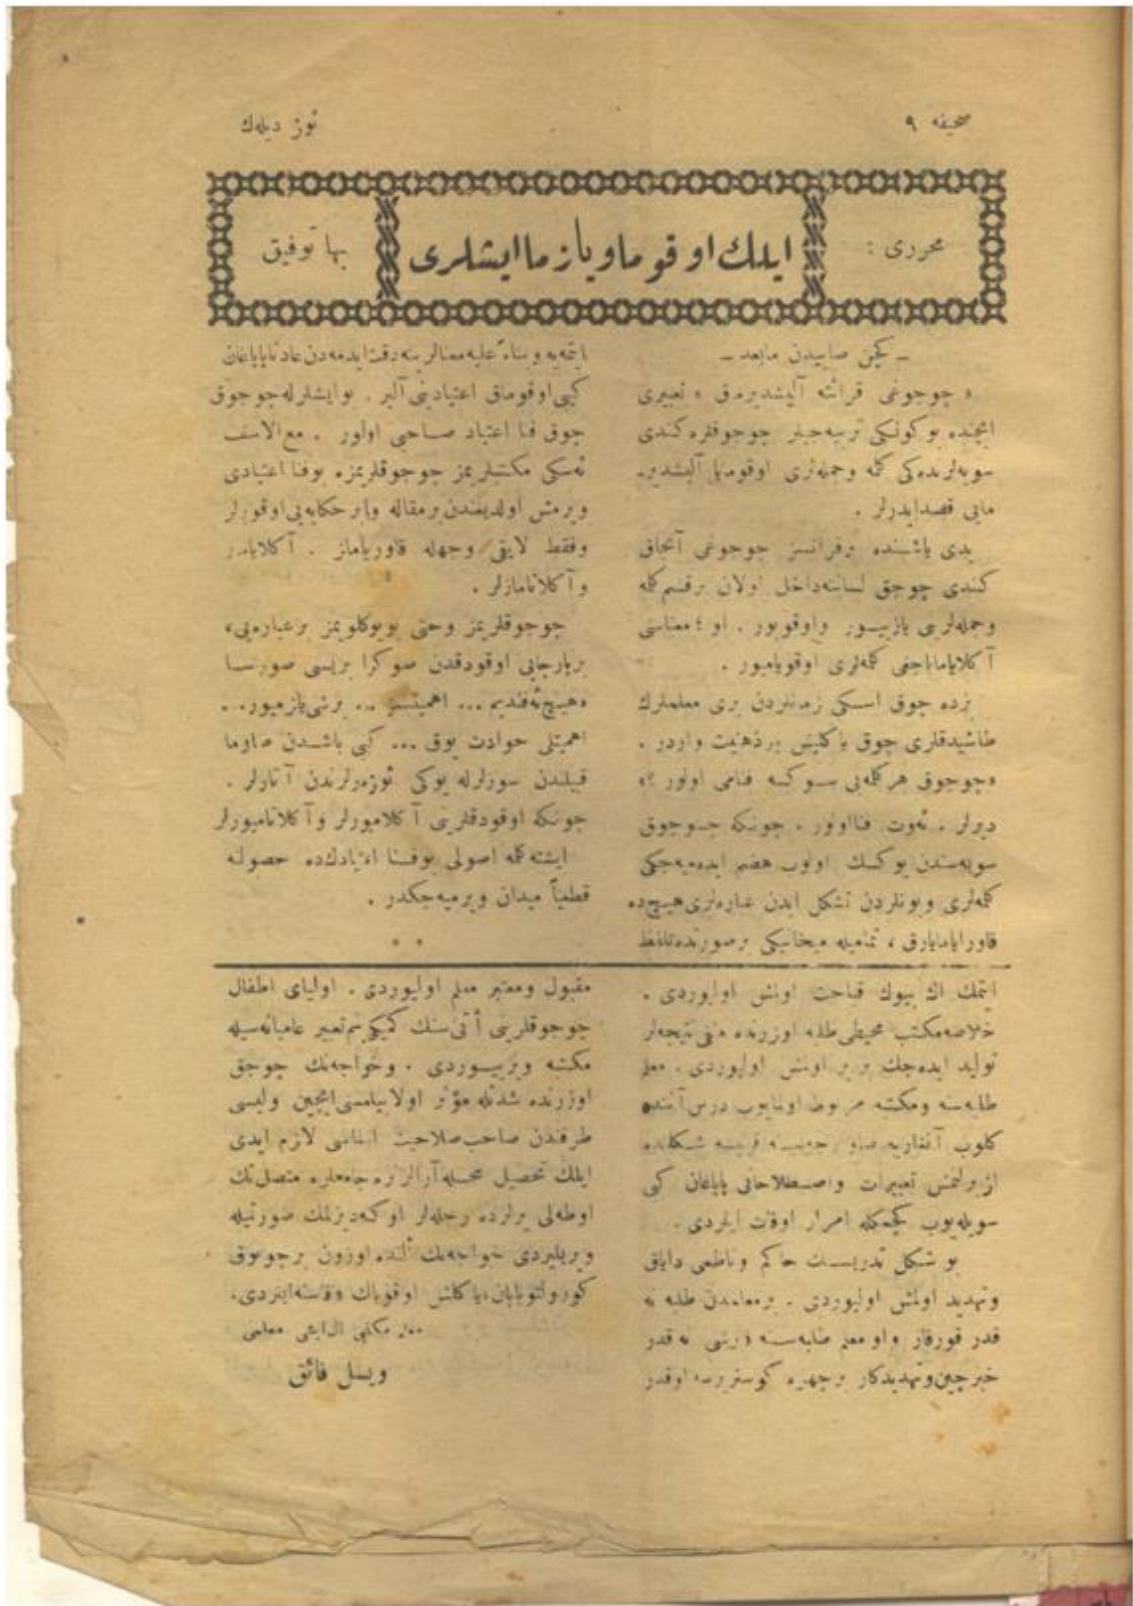 صحیفه ٩
ئوز دیله‌ك
محرری :
ایلك اوقوما و یازما ایشلری
بها توفیق
ـ كچن صاییدن مابعد ـ
« چوجوغی قرائته آلیشدیرمق » تعبیری
ایچنده بوكونكی تربیه‌جیلر چوجوقلره كندی
سویه‌لرنده‌كی كلمه وجمله‌لری اوقومایا آلیشدیر‌ـ
مایی قصد ایدرلر .
یدی یاشنده برفرانسز چوجوغی آنجاق
كندی چوجق لساننه داخل اولان برقسم كلمه
وجمله‌لری یازییور واوقویور . او ؛ معناسنی
آكلایامایاجغی كلمه‌لری اوقویامیور .
بزده چوق اسكی زمانلردن بری معلملرك
طاشیدقلری چوق یاكلیش برذهنیت واردر .
«چوجوق هركلمه‌یی سوكسه فنامی اولور ؟»
دیرلر . ئه‌وت فنااولور . چونكه چوجوق
سویه‌سندن یوكسك اولوب هضم ایده‌میه‌جكی
كلمه‌لری وبونلردن تشكل ایدن عباره‌لری هیچ‌ده
قاورایامایارق ، تمامیله میخانیكی برصورتده تلفظ
ایتمه‌یه و بناءً علیه معنالرینه دقت ایدمه‌دن عادتا پاپاغان
كبی اوقوماق اعتیادینی آلیر . بوایشلرله چوجوق
چوق فنا اعتیاد صاحبی اولور . مع الاسف
ئه‌سكی مكتبلریمز چوجوقلریمزه بوفنا اعتیادی
ویرمش اولدیغندن برمقاله ویا برحكایه‌یی اوقورلر
وفقط لایقی وجهله قاوریاماز . آكلایاماز
و آكلاتامازلر .
چوجوقلریمز وحتی بویوكلریمز برعباره‌یی،
برپارچایی اوقودقدن صوكرا بریسی صورسا
«هیچ ئه‌فندیم ... اهمیتسز ... برشی یازمیور..
اهمیتلی حوادث یوق ... كبی باشدن صاوما
قبیلندن سوزلرله یوكی ئوزه‌رلرندن آتارلر .
چونكه اوقودقلرینی آكلامیورلر و آكلاتامیورلر
ایشته كلمه اصولی بوفنا اعتیادك‌ده حصولنه
قطعیاً میدان ویرمیه‌جكدر .
* *
ایتمك اك بیوك قباحت اولمش اولیوردی .
خلاصه مكتب محیطی طلبه اوزرنده منفی نتیجه‌لر
تولید ایده‌جك بر یر اولمش اولیوردی . معلم
طلبه‌سنه ومكتبه مربوط اولمایوب درس آننده
كلوب آنغاریه صاو
ازبرلنمش تعبیرات واصطلاحاتی پاپاغان كبی
سویله‌یوب كچمكله امرار اوقات ایلردی .
بو شكل تدریساتك حاكم وناظمی دایاق
وتهدید اولمش اولیوردی . برمعلمدن طلبه نه
قدر قورقار واو معلم طلبه‌سنه درسی نه قدر
خیرچین وتهدیدكار برچهره كوستریرسه اوقدر
مقبول ومعتبر معلم اولیوردی . اولیای اطفال
چوجوقلرینی أتی سنك كمیكی بنم تعبیر عامیانه‌سیله
مكتبه ویرییوردی . وخواجه‌نك چوجق
اوزرنده شدتله مؤثر اولابیلمسی ایچین ولیسی
طرفندن صاحب صلاحیت لازم ایدی
ایلك تحصیل محله آرالرنده جامعلره متصل تك
اوطه‌لی یرلرده رحله‌لر اوكنه دیزلمك صورتیله
ویریلیردی خواجه‌نك ألنده اوزون برچوبوق
كورولتو یاپان، یاكلش اوقویانك
مكتبی معلمی
ویسل فائق